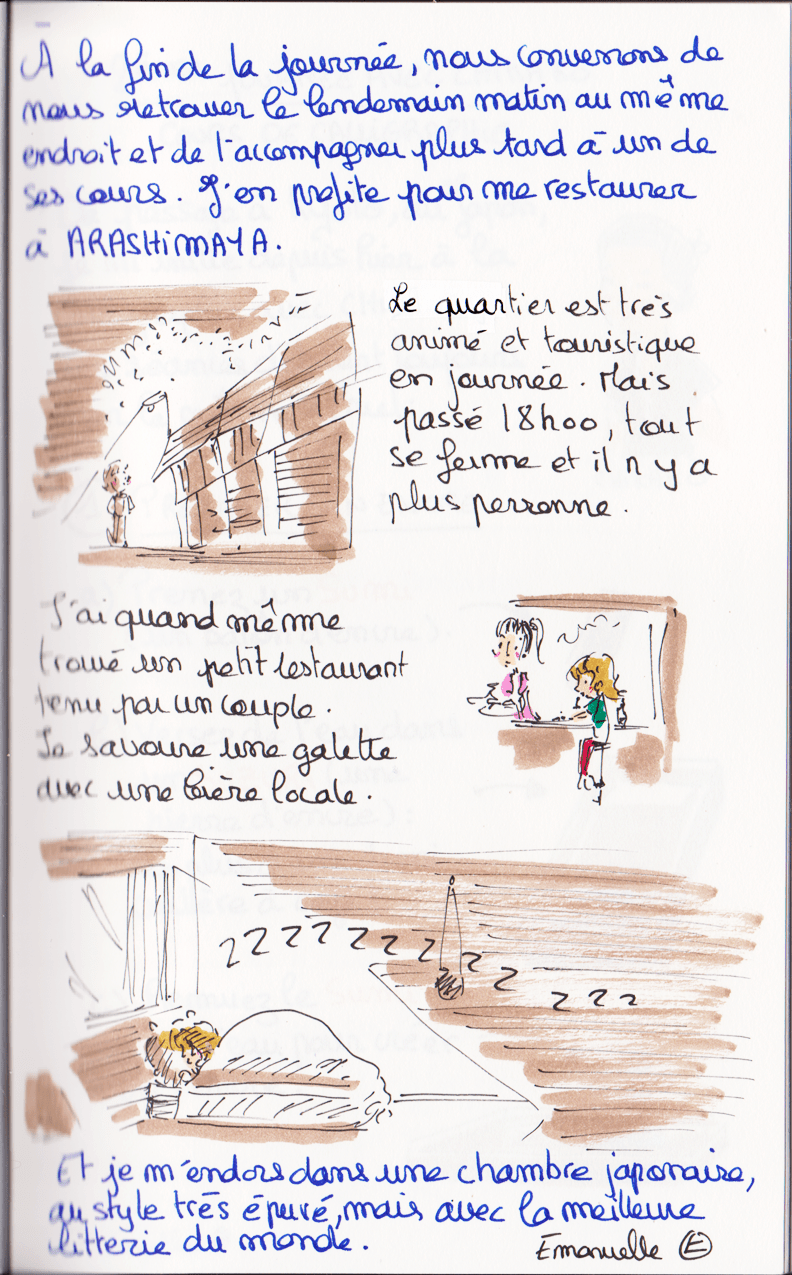 A la fin de la journée, nous convenons de
nous retrouver le lendemain matin au même
endroit et de l'accompagner plus tard à un de
ses cours. J'en profite pour me restaurer
à ARASHIMAYA.
Le quartier est très
animé et touristique
en journée. Mais
passé 18h00, tout
se ferme et il n y a
plus personne.
J'ai quand même
trouvé un petit restaurant
tenu par un couple.
Je savoure une galette
avec une bière locale.
ZZZZZZZZZZZZ
Et je m'endors dans une chambre japonaise,
au style très épuré, mais avec la meilleure
litterie du monde.
Emmanuelle E